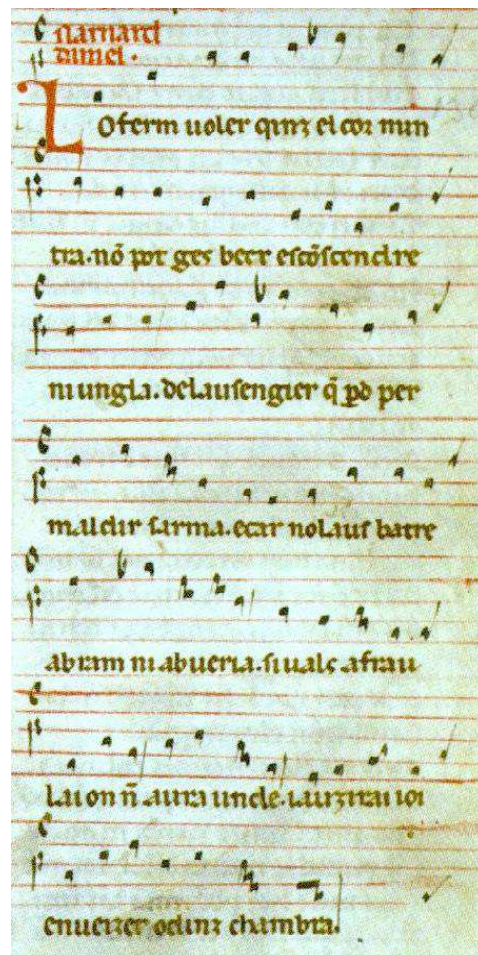 narnard
daniel.
Lo ferm uoler qinz el cor min
tra. nõ pot ges becx escõscendre
ni ungla. de lausengier q̃ ꝑd per
mal dir sarma. e car nolaus batre
ab ram ni ab ueria. siuals a frau
lai on ñ aura uncle. iauzirai ioi
en uerzer o dinz chambra.